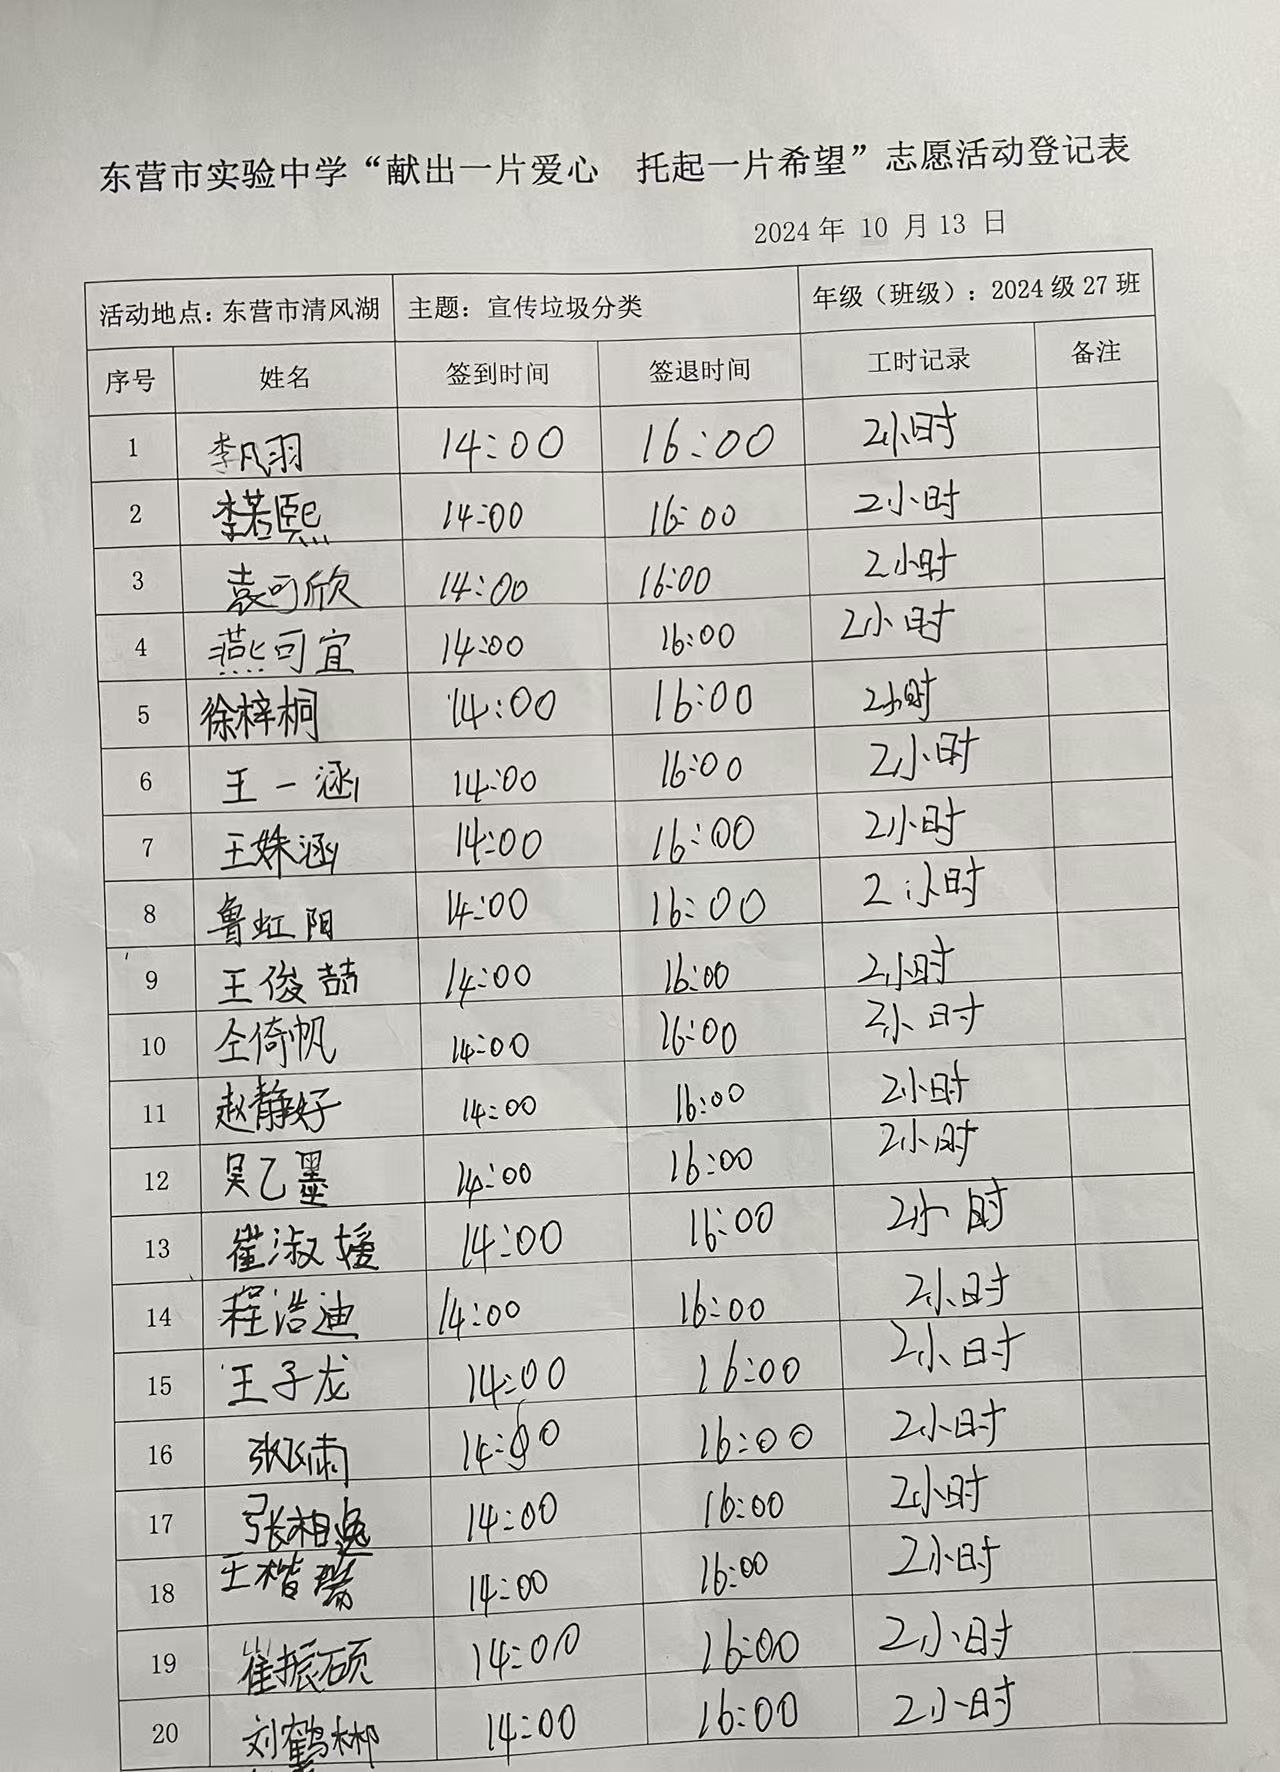 东营市实验中学“献出一片爱心 托起一片希望”志愿活动登记表
2024年 10 月 13 日
活动地点：东营市清风湖 主题：宣传垃圾分类 年级（班级）：2024级27班
序号 姓名 签到时间 签退时间 工时记录 备注
1 李凡羽 14:00 16:00 2小时
2 李若熙 14:00 16:00 2小时
3 袁可欣 14:00 16:00 2小时
4 燕可宜 14:00 16:00 2小时
5 徐梓桐 14:00 16:00 2小时
6 王一涵 14:00 16:00 2小时
7 王姝涵 14:00 16:00 2小时
8 鲁虹阳 14:00 16:00 2小时
9 王俊喆 14:00 16:00 2小时
10 仝倚帆 14:00 16:00 2小时
11 赵静好 14:00 16:00 2小时
12 吴乙墨 14:00 16:00 2小时
13 崔淑媛 14:00 16:00 2小时
14 程浩迪 14:00 16:00 2小时
15 王子龙 14:00 16:00 2小时
16 14:00 16:00 2小时
17 张相逸 14:00 16:00 2小时
18 王楷 14:00 16:00 2小时
19 崔振硕 14:00 16:00 2小时
20 刘鹤彬 14:00 16:00 2小时